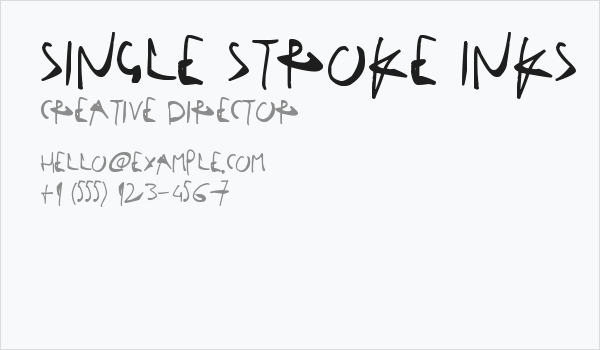 SINGLE STROKE INKS
CREATIVE DIRECTOR
HELLO@EXAMPLE.COM
+1 (555) 123-4567